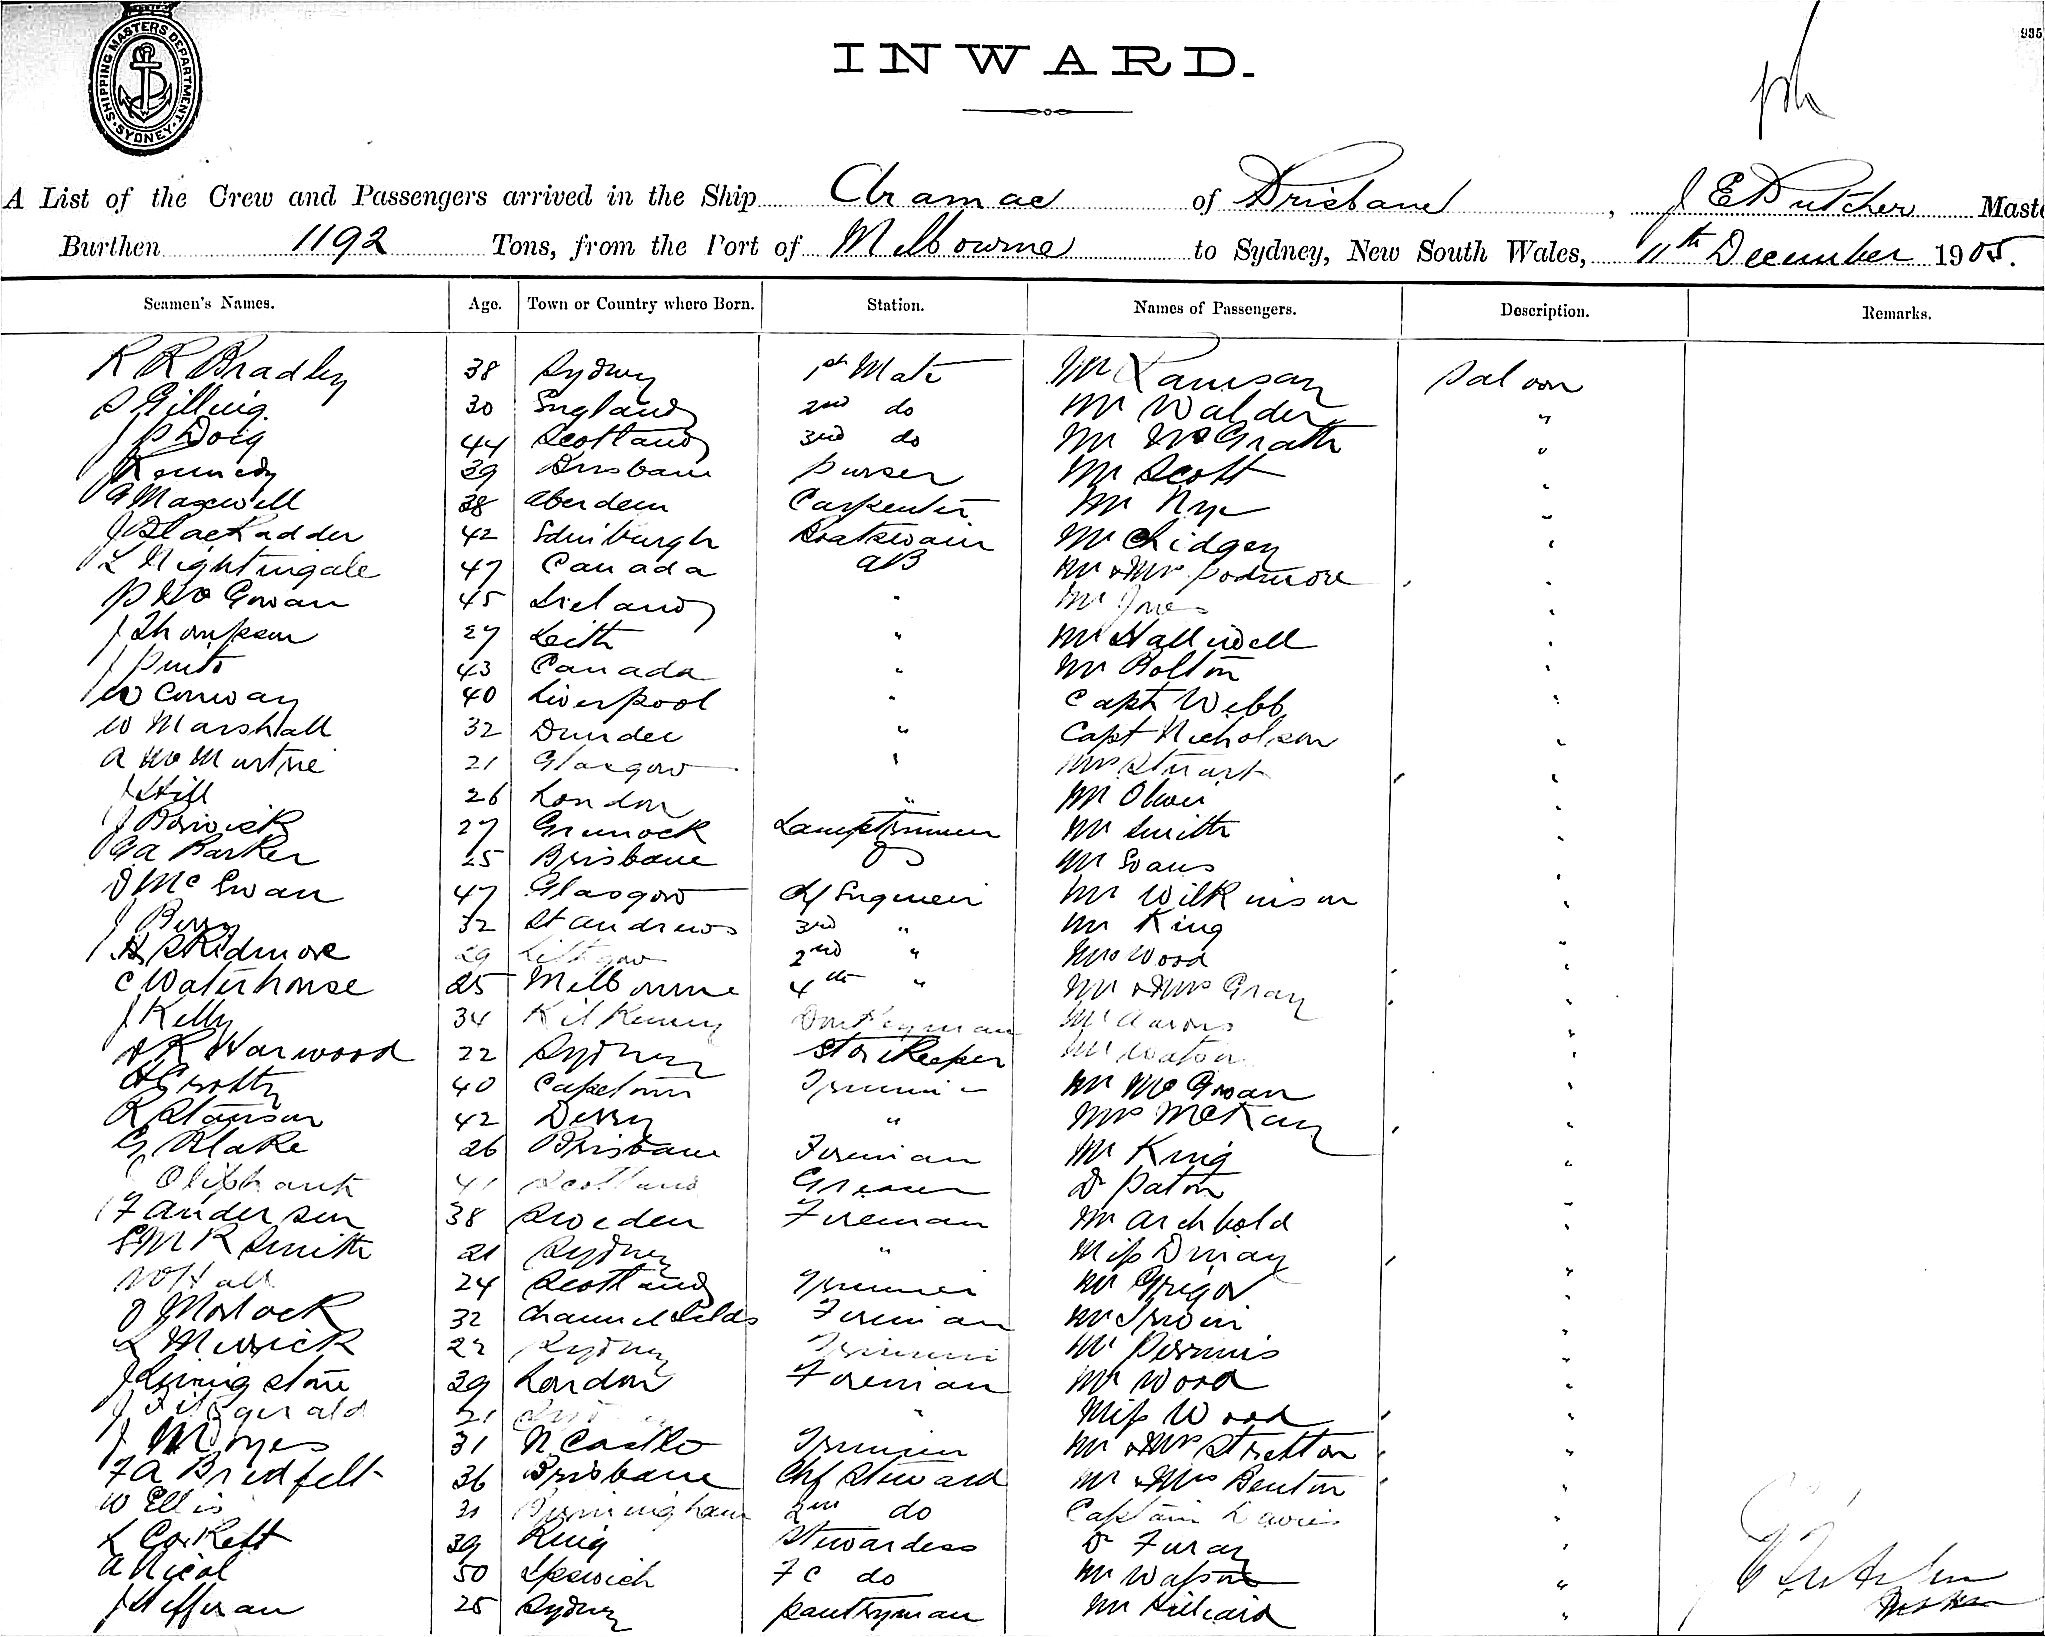 SHIPPING MASTERS DEPARTMENT
SYDNEY
935
INWARD.
A List of the Crew and Passengers arrived in the Ship Aramac of Brisbane, J E Butcher Maste
Burthen 1192 Tons, from the Port of Melbourne to Sydney, New South Wales, 11th December 1905.
Seamen's Names. Age. Town or Country where Born. Station. Names of Passengers. Description. Remarks.
R R Bradley 38 Sydney 1st Mate Mr Ramsay Saloon
S Gilling 30 England 2nd do Mr Walder "
J P Doig 44 Scotland 3rd do Mr McGrath "
Kennedy 39 Brisbane Purser Mr Scott "
G Maxwell 38 Aberdeen Carpenter Mr Nye "
J Blackadder 42 Edinburgh Boatswain Mr Chidgey "
L Nightingale 47 Canada AB Mr & Mrs Podmore "
P McGowan 45 Ireland " Mr Jones "
J Thompson 27 Leith " Mr Halliwell "
J 43 Canada " Mr Bolton "
W Conway 40 Liverpool " Capt Webb "
W Marshall 32 Dundee " Capt Nicholson "
A McMurtrie 21 Glasgow " Mrs Stuart "
J Hill 26 London " Mr Oliver "
J Borwick 27 Greenock Lamptrimmer Mr Smith "
G A Barker 25 Brisbane OS Mr Evans "
D McEwan 47 Glasgow Cf Engineer Mr Wilkinson "
J 32 St Andrews 3rd " Mr King "
H Skidmore 29 Lithgow 2nd " Mrs Wood "
C Waterhouse 25 Melbourne 4th " Mr & Mrs Gray "
J Kelly 34 Kilkenny Donkeyman Mr Aarons "
K Warwood 22 Sydney Storekeeper Mr Watson "
H Crotty 40 Capetown Trimmer Mr McGowan "
R 42 Derry " Mrs McKay "
G Blake 26 Brisbane Fireman Mr King "
Oliphant 41 Scotland Greaser Dr Paton "
F Andersen 38 Sweden Fireman Mr Archbold "
E M R Smith 21 Sydney " Miss "
W Hall 24 Scotland Trimmer Mr Grigor "
J Morlock 32 Channel Islds Fireman Mr Irwin "
L Merrick 22 Sydney Trimmer Mr "
J Livingstone 39 London Fireman Mr Wood "
J Fitzgerald 21 " Miss Wood "
J Moyes 31 N Castle Trimmer Mr & Mrs Stretton "
F A Bredfelt 36 Brisbane Chf Steward Mr & Mrs Benton "
W Ellis 31 Birmingham 2nd do Captain Davies "
L Corkett 39 Stewardess Dr "
A Nicol 50 Ipswich F C do Mr Watson "
J Heffernan 25 Sydney Pantryman Mr Hilliard "
J E Butcher
Master